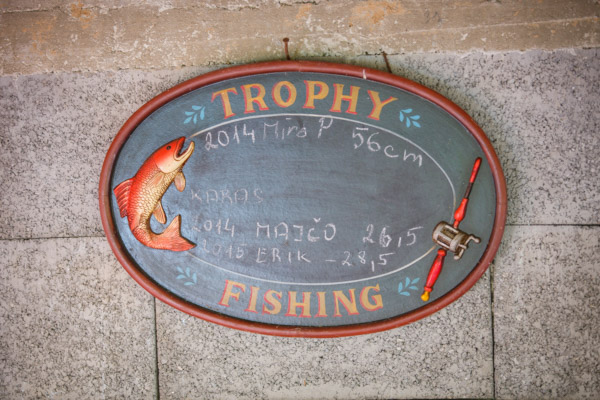 TROPHY
2014 Miro P 56cm
KARAS
2014 MAJČO 26,5
2015 ERIK - 28,5
FISHING